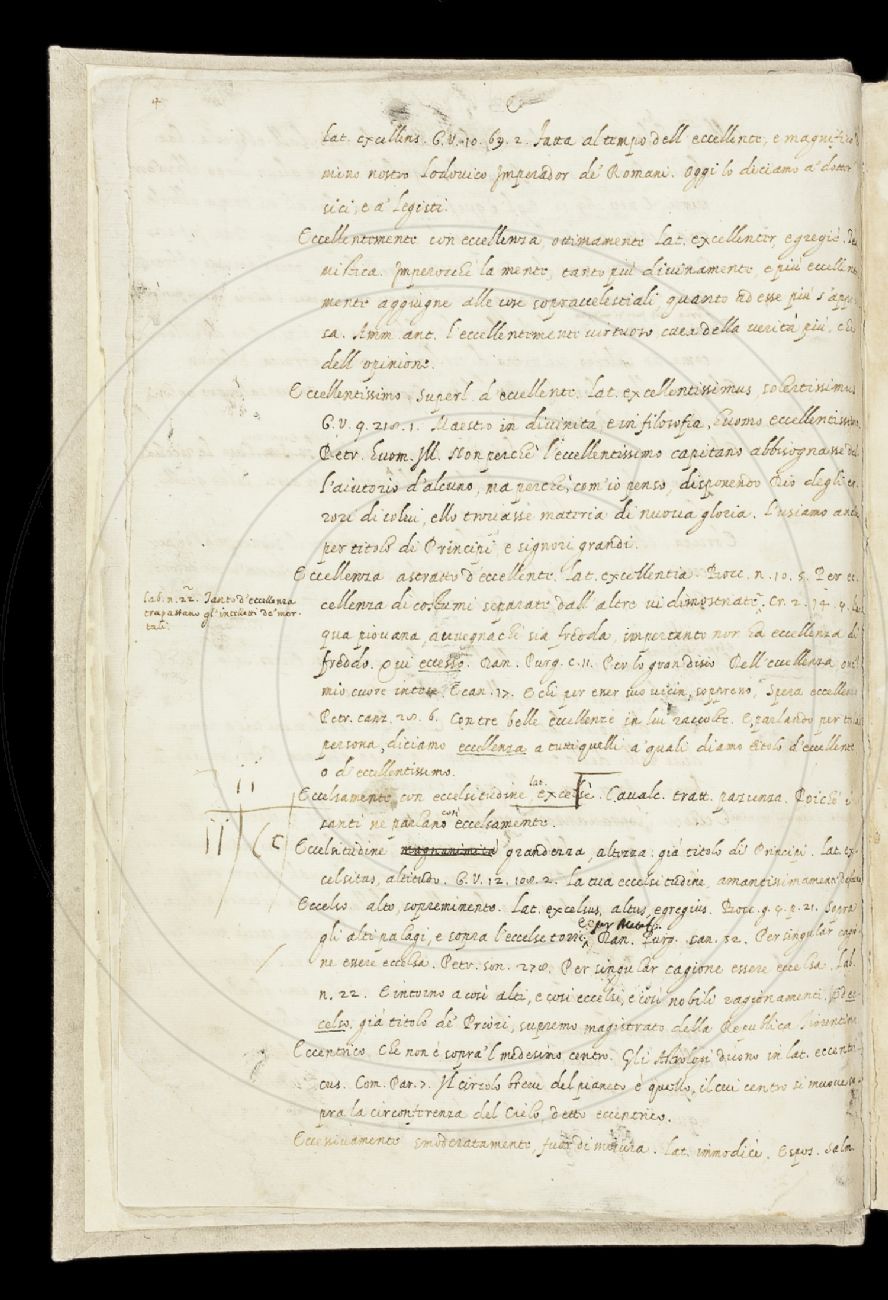 4
Lat. excellens. G.V. 10. 69. 2. Fatta al tempo dell eccellente, e magnifico
mino nostro Lodovico Imperador de' Romani. Oggi lo diciamo a' dottor
sici, e a' legisti.
Eccellentemente con eccellenza, ottimamente. Lat. excellenter, egregiè.
mistica. Imperocchè la mente, tanto più divinamente, e più eccellen
mente aggiugne alle cose sopraccelestiali quanto ad esse più s'appr
sa. Amm. ant. l'eccellentemente virtuoso cura della verità più, che
dell'opinione.
Eccellentissimo. Superl. d'eccellente. Lat. excellentissimus, solertissimus
G.V. 9. 218. 1. Maestro in divinità, e in filosofia, huomo eccellentissimo.
Petr. huom. Ill. Non perchè l'eccellentissimo capitano abbisognasse del
l'aiutorio d'alcuno, ma perchè, com'io penso, disponendo Dio degli er
rori di colui, ello trovasse materia di nuova gloria. L'usiamo anche
per titolo di Principi, e signori grandi.
Eccellenza astratto d'eccellente. Lat. excellentia. Bocc. n. 10. 5. Per ec
Lab. n. 22. Tanto d'eccellenza
trapassano gl'intelletti de' mor-
tali.
cellenza di costumi separate dall'altre vi dimostrate. Cr. 2. 14. 4.
qua piovana, avvegnachè sia fredda, impertanto non ha eccellenza di
freddo. Qui eccesso. Dan. Purg. c. 11. Per lo gran disio Dell'eccellenza ove
mio cuore intese. E can. 17. E chi per esser suo vicin soppresso, Spera eccellenza
Petr. canz. 28. 6. Con tre belle eccellenze in lui raccolte. E, parlando per
persona, diciamo eccellenza a tutti quelli a' quali diamo titolo d'eccellente
o d'eccellentissimo.
Eccelsamente con eccelsitudine, lat. excelsè. Cavalc. tratt. pazienza. Poichè i
santi ne parlano così eccelsamente.
Eccelsitudine grandezza, altezza: già titolo di Principi. Lat. ex-
celsitas, altitudo. G.V. 12. 108. 2. La tua eccelsitudine, amantissimamente
Eccelso alto, sopreminente. Lat. excelsus, altus, egregius. Bocc. g. 4. p. 21. Sopra
gli alti palagi, e sopra l'eccelse torri. E per Metaf. Dan. Purg. Per singular
ne essere eccelsa. Petr. son. 278. Per singular cagione essere eccelsa. Lab.
n. 22. E intorno a così alti, e così eccelsi, e così nobili ragionamenti.
celso, già titolo de' Priori, supremo magistrato della Republica Fiorentina
Eccentrico che non è sopra 'l medesimo centro. Gli Astrologi dicono in lat. eccentri-
cus. Com. Par. 7. Il circolo breve del pianeto è quello, il cui centro si muove
pra la circonferenza del Cielo detto eccentrico.
Eccessivamente smoderatamente, fuor di misura. Lat. immodicè. Espos. Salm.